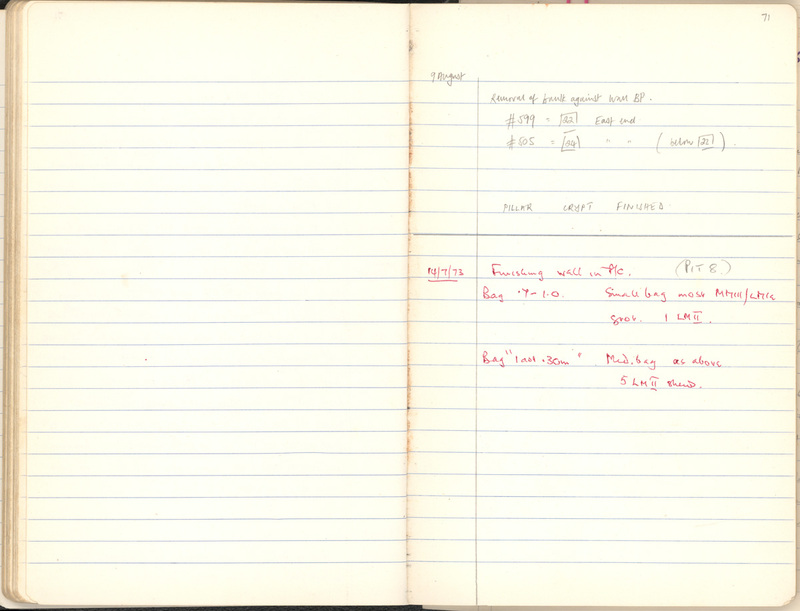 71
9 August
Removal of baulk against wall BP.
#599 = 22 East end
#505 = 24 " " (below 21).
PILLAR CRYPT FINISHED.
14/7/73 Finishing wall in P/C. (PIT 8.)
Bag .7 - 1.0. Small bag most MMIII/LMIA
1 LM II.
Bag "last .30m" Med. bag as above
5 LM II sherds.